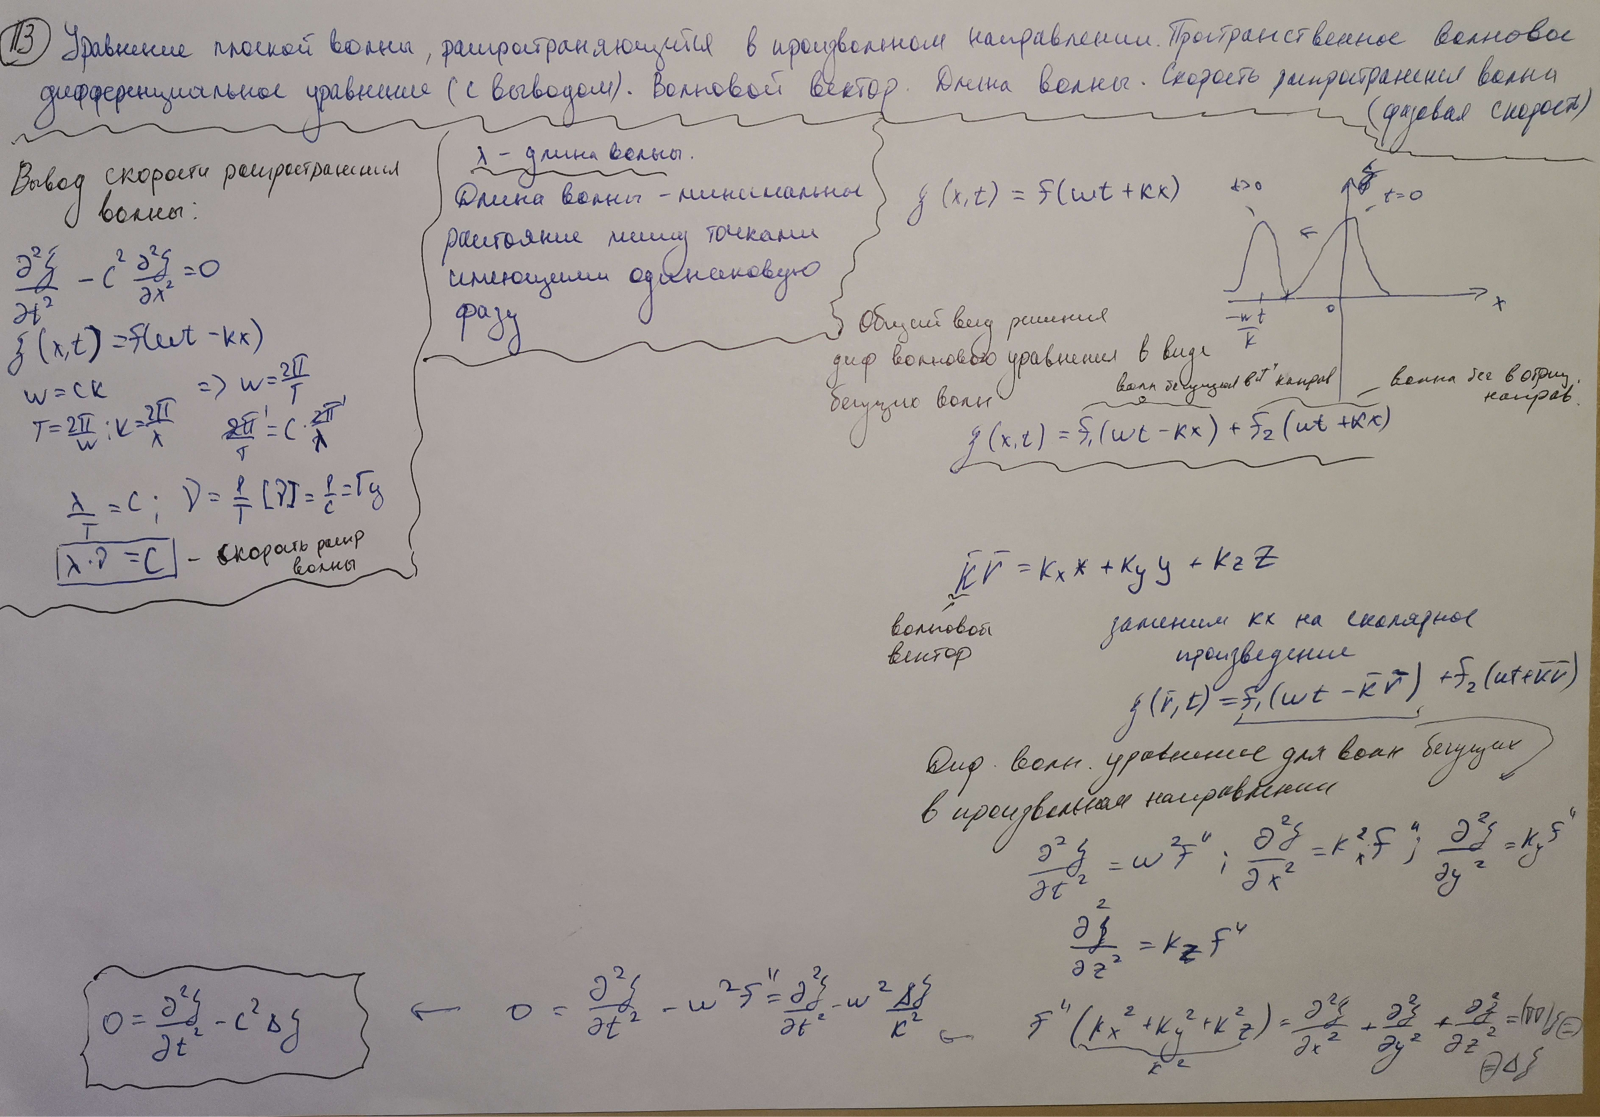 13 Уравнение плоской волны, распространяющейся в произвольном направлении. Пространственное волновое
дифференциальное уравнение (с выводом). Волновой вектор. Длина волны. Скорость распространения волны
(фазовая скорость)
Вывод скорости распространения
волны:
∂²ξ/∂t² - c² ∂²ξ/∂x² = 0
ξ(x,t) = f(ωt - kx)
ω = ck => ω = 2π/T
T = 2π/ω; k = 2π/λ 2π/T = c · 2π/λ
λ/T = c; ν = 1/T [ν] = 1/с = Гц
λ·ν = c - скорость распр
волны
λ - длина волны.
Длина волны - минимальны
растояние между точками
имеющими одинаковую
фазу
ξ(x,t) = f(ωt + kx)
t>0 ξ t=0
x
0
-ω/k t
Общий вид решения
диф волнового уравнения в виде
бегущих волн
волн бегущая в "+" направ
волна бег в отриц.
направ.
ξ(x,t) = f₁(ωt - kx) + f₂(ωt + kx)
k̄r̄ = kₓx + k_y y + k_z z
волновой
вектор
заменим kx на скалярное
произведение
ξ(r̄,t) = f₁(ωt - k̄r̄) + f₂(ωt + k̄r̄)
Диф. волн. уравнение для волн бегущих
в произвольном направлении
∂²ξ/∂t² = ω²f''; ∂²ξ/∂x² = kₓ²f''; ∂²ξ/∂y² = k_y f''
∂²ξ/∂z² = k_z f''
f''(kₓ² + k_y² + k²z) = ∂²ξ/∂x² + ∂²ξ/∂y² + ∂²ξ/∂z² = (∇∇)ξ =
k²
= Δξ
← 0 = ∂²ξ/∂t² - ω²f'' = ∂²ξ/∂t² - ω² Δξ/k² ←
0 = ∂²ξ/∂t² - c²Δξ